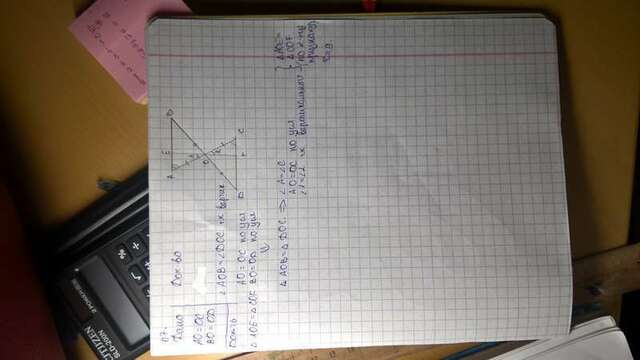 CITIZEN
SLD-200N
2 POWER
67.
Дано
Док-во
AO=OC
BO=OD
∠AOB=∠DOC тк вертик
Док-ть
AO=OC по усл
△AOE=△COF BO=OD по усл
⇓
△AOB=△DOC ⇒ ∠A=∠C
AO=OC по усл
∠1=∠2 тк вертикальный
△AOE=
△COF
признаку
A E B
O
D F C